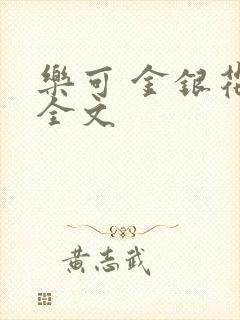 樂可 金銀花
全文
黄志武